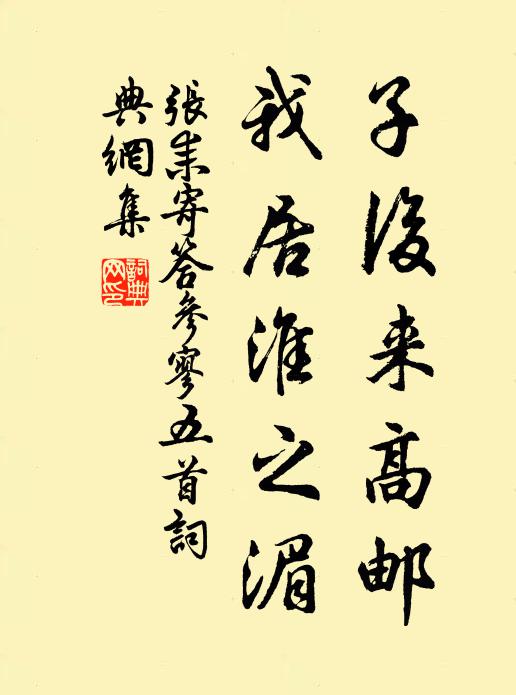 子後来高邮
我居淮之湄
張耒寄答參寥五首詞
典網集
詞典
网印